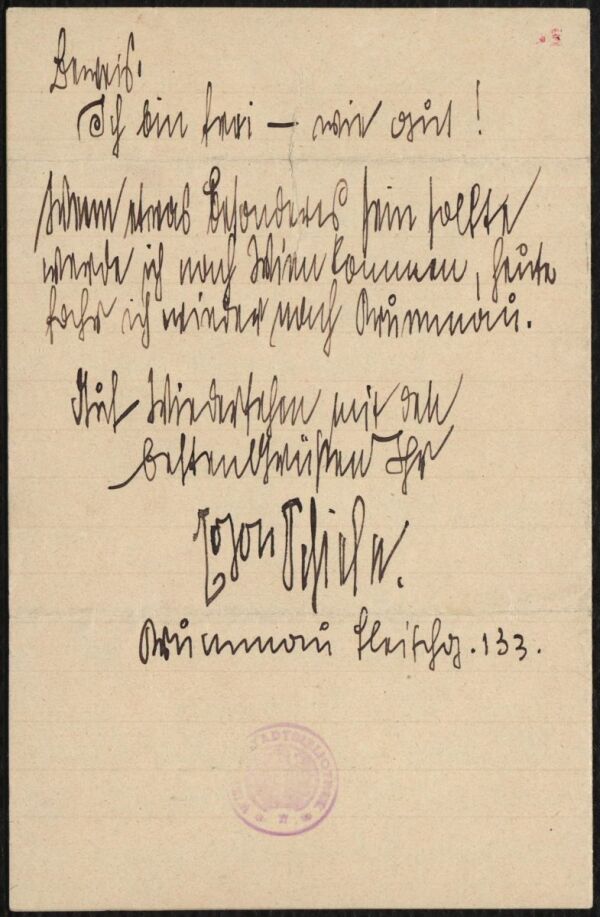 Beweis:
Ich bin frei — wie gut!
Wenn etwas besonderes sein sollte
werde ich nach Wien kommen, heute
fahr ich wieder nach Krummau.
Auf Wiedersehen mit den
besten Grüßen Ihr
Egon Schiele.
Krummau Fleischg. 133.
STADTBIBLIOTHEK